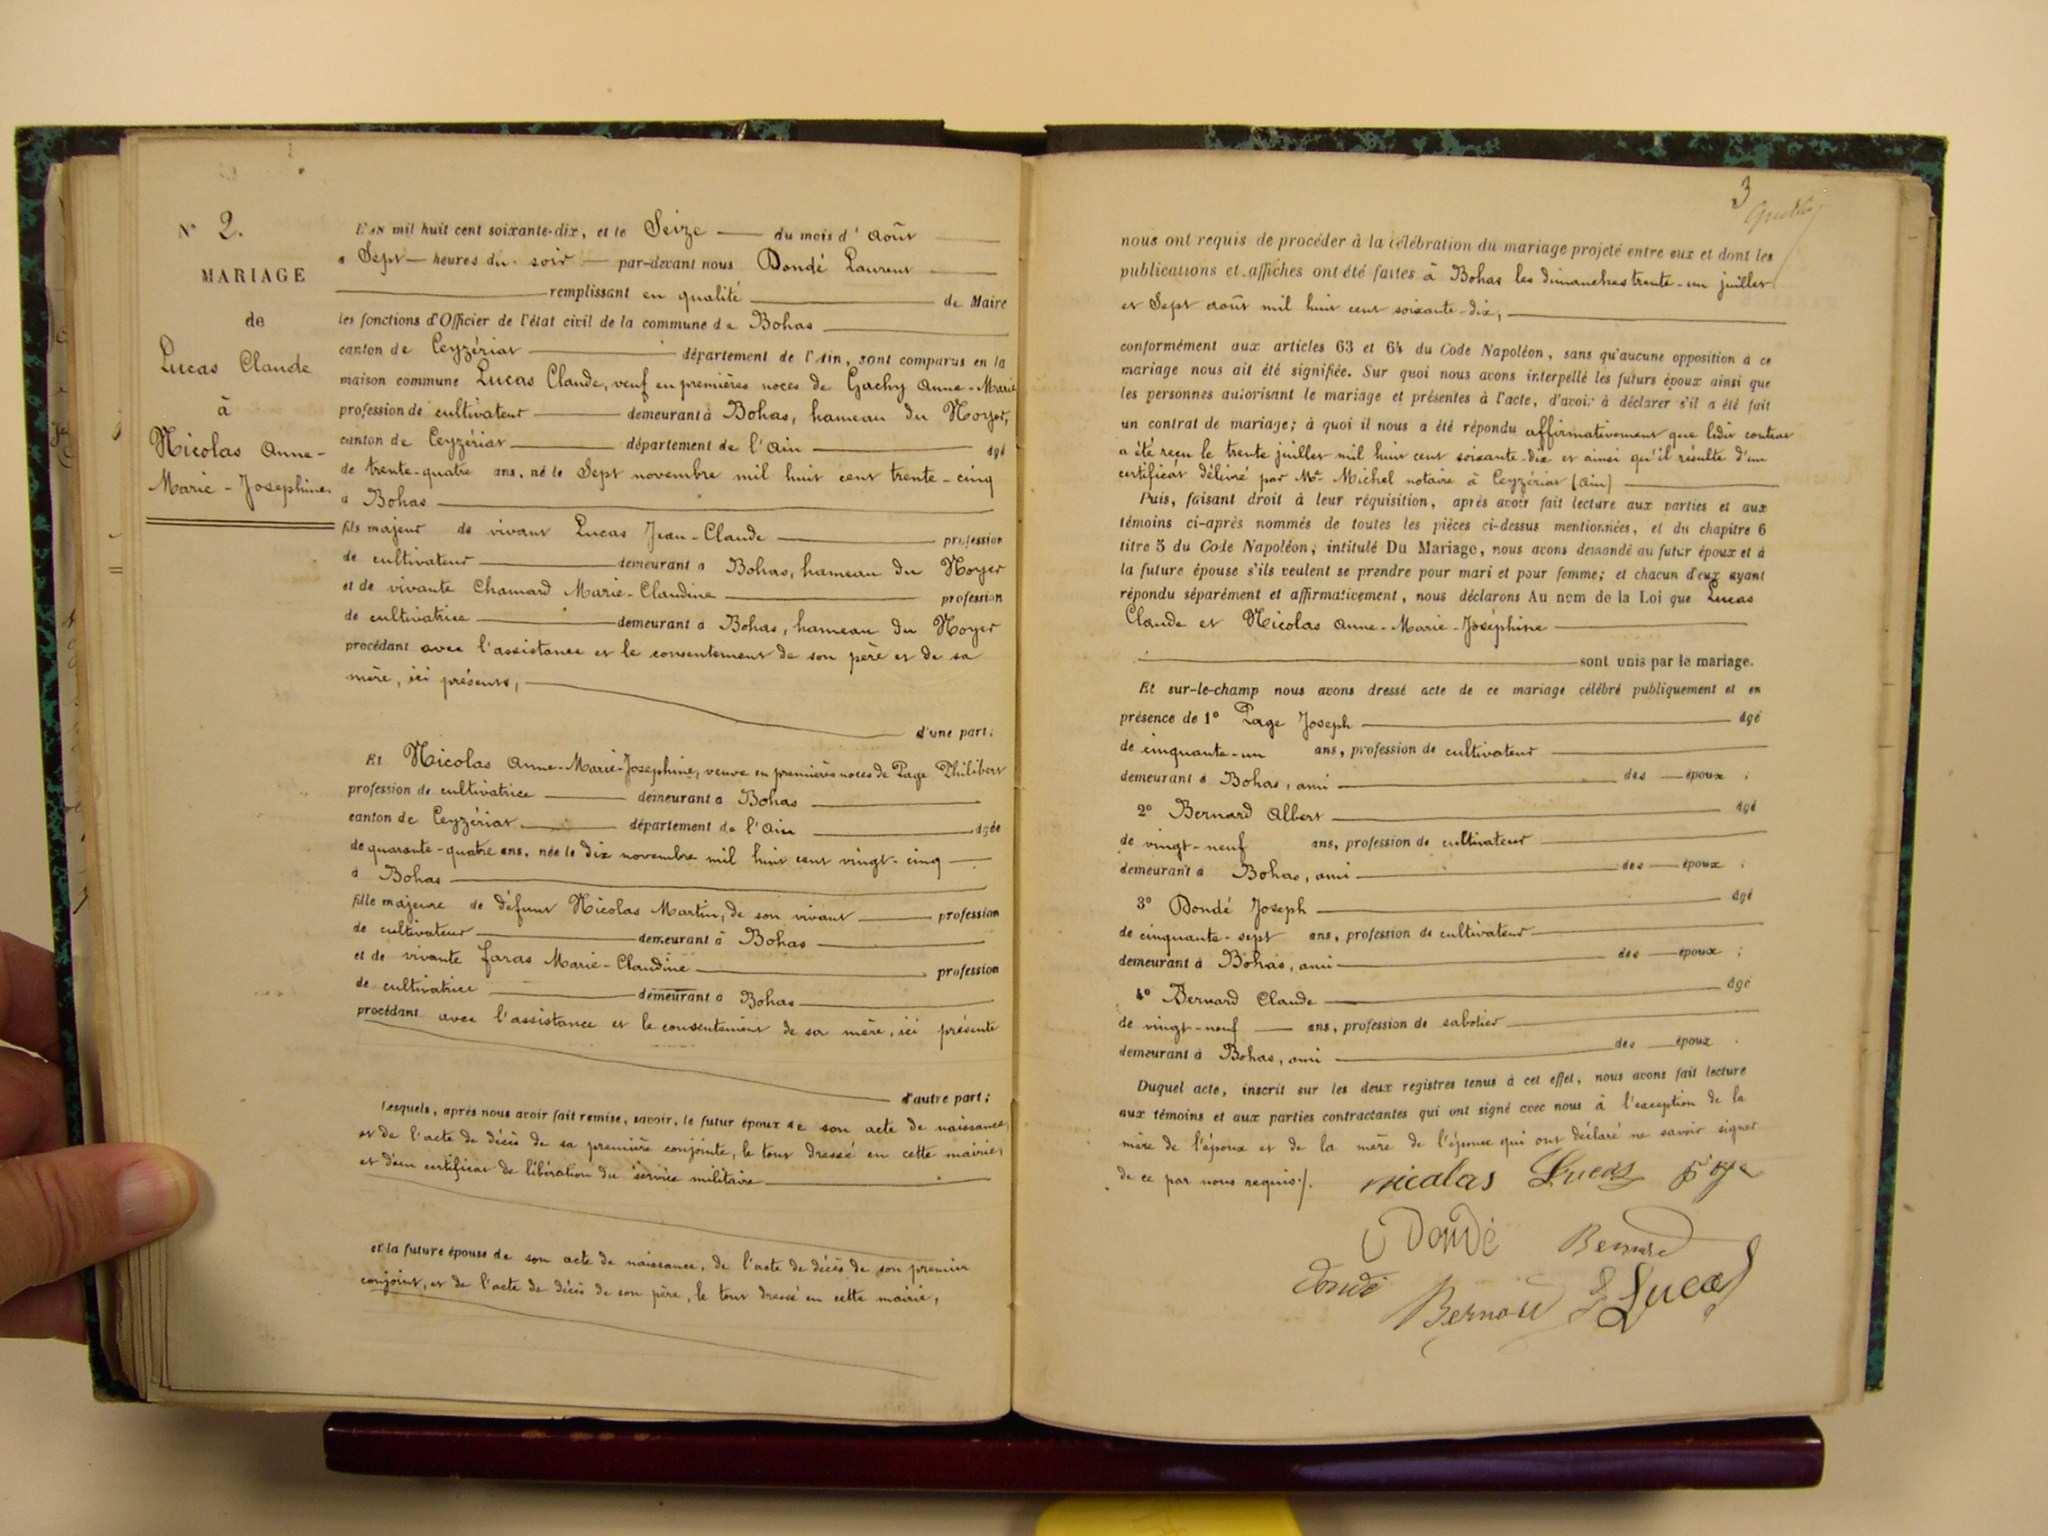 N° 2.
MARIAGE
de
Lucas Claude
à
Nicolas Anne-
Marie-Josephine
L'AN mil huit cent soixante-dix, et le Seize du mois d'août
à Sept heures du soir par-devant nous Dondé Laurent
remplissant en qualité de Maire
les fonctions d'Officier de l'état civil de la commune de Bohas
canton de Ceyzériat département de l'Ain, sont comparus en la
maison commune Lucas Claude, veuf en premières noces de Gachy Anne-Marie
profession de cultivateur demeurant à Bohas, hameau du Noyer,
canton de Ceyzériat département de l'Ain âgé
de trente-quatre ans, né le Sept novembre mil huit cent trente-cinq
à Bohas
fils majeur de vivant Lucas Jean-Claude profession
de cultivateur demeurant à Bohas, hameau du Noyer
et de vivante Chanard Marie-Claudine profession
de cultivatrice demeurant à Bohas, hameau du Noyer
procédant avec l'assistance et le consentement de son père et de sa
mère, ici présents,
d'une part;
Et Nicolas Anne-Marie-Josephine, veuve en premières noces de Page Philibert
profession de cultivatrice demeurant à Bohas
canton de Ceyzériat département de l'Ain âgée
de quarante-quatre ans, née le dix novembre mil huit cent vingt-cinq
à Bohas
fille majeure de défunt Nicolas Martin, de son vivant profession
de cultivateur demeurant à Bohas
et de vivante faras Marie-Claudine profession
de cultivatrice demeurant à Bohas
procédant avec l'assistance et le consentement de sa mère, ici présente
d'autre part;
Lesquels, après nous avoir fait remise, savoir, le futur époux de son acte de naissance,
et de l'acte de décès de sa première conjointe, le tout dressé en cette mairie,
et d'un certificat de libération du service militaire
et la future épouse de son acte de naissance, de l'acte de décès de son premier
conjoint, et de l'acte de décès de son père, le tout dressé en cette mairie,
3
nous ont requis de procéder à la célébration du mariage projeté entre eux et dont les
publications et affiches ont été faites à Bohas les dimanches trente-un juillet
et Sept août mil huit cent soixante-dix,
conformément aux articles 63 et 64 du Code Napoléon, sans qu'aucune opposition à ce
mariage nous ait été signifiée. Sur quoi nous avons interpellé les futurs époux ainsi que
les personnes autorisant le mariage et présentes à l'acte, d'avoir à déclarer s'il a été fait
un contrat de mariage; à quoi il nous a été répondu affirmativement que ledit contrat
a été reçu le trente juillet mil huit cent soixante-dix et ainsi qu'il résulte d'un
certificat délivré par Mr Michel notaire à Ceyzériat (Ain)
Puis, faisant droit à leur réquisition, après avoir fait lecture aux parties et aux
témoins ci-après nommés de toutes les pièces ci-dessus mentionnées, et du chapitre 6
titre 5 du Code Napoléon, intitulé Du Mariage, nous avons demandé au futur époux et à
la future épouse s'ils veulent se prendre pour mari et pour femme; et chacun d'eux ayant
répondu séparément et affirmativement, nous déclarons Au nom de la Loi que Lucas
Claude et Nicolas Anne-Marie-Joséphine
sont unis par le mariage.
Et sur-le-champ nous avons dressé acte de ce mariage célébré publiquement et en
présence de 1° Page Joseph âgé
de cinquante-un ans, profession de cultivateur
demeurant à Bohas, ami des époux;
2° Bernard Albert âgé
de vingt-neuf ans, profession de cultivateur
demeurant à Bohas, ami des époux;
3° Dondé Joseph âgé
de cinquante-sept ans, profession de cultivateur
demeurant à Bohas, ami des époux;
4° Bernard Claude âgé
de vingt-neuf ans, profession de sabotier
demeurant à Bohas, ami des époux.
Duquel acte, inscrit sur les deux registres tenus à cet effet, nous avons fait lecture
aux témoins et aux parties contractantes qui ont signé avec nous à l'exception de la
mère de l'époux et de la mère de l'épouse qui ont déclaré ne savoir signer
de ce par nous requis./.
nicolas Lucas
Dondé Bernard
dondé
Bernard Lucas